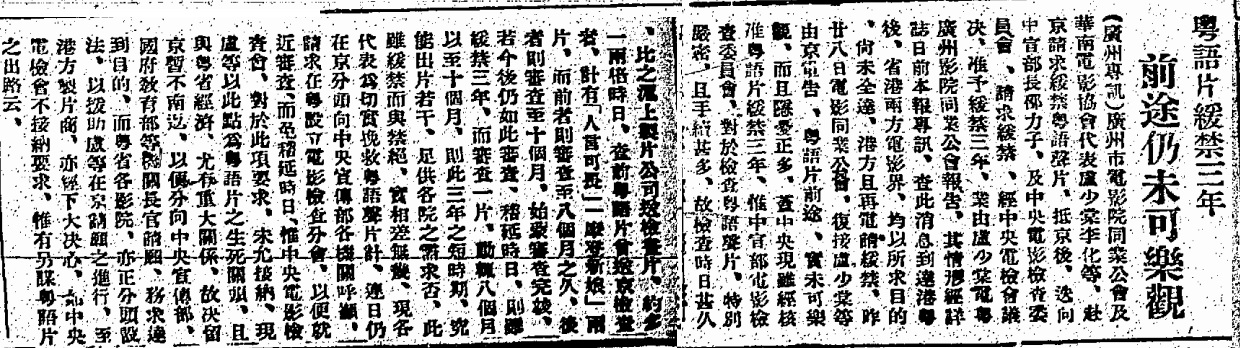 粵語片緩禁三年
前途仍未可樂觀
(廣州專訊)廣州市電影院同業公會及
華南電影協會代表盧少棠李化等、赴
京請求緩禁粵語聲片、抵京後、迭向
中宣部長邵力子、及中央電影檢查委
員會、請求緩禁、經中央電檢會議
決、准予緩禁三年、業由盧少棠電粵
廣州影院同業公會報告、其情形經詳
誌日前本報專訊、查此消息到達港粵
後、省港兩方電影界、均以所求目的
、尚未全達、港方且再電請緩禁、昨
廿八日電影同業公會、復接盧少棠等
由京電告、粵語片前途、實未可樂
觀、而且隱憂正多、蓋中央現雖經核
准粵語片緩禁三年、惟中宣部電影檢
查委員會、對於檢查粵語聲片、特別
嚴密、且手續甚多、故檢查時日甚久
、比之滬上製片公司送檢查片、約多
一兩倍時日、查前粵語片曾送京檢查
者、計有「人言可畏」「摩登新娘」兩
片、而前者則審查至八個月之久、後
者則審查至十個月、始蒙審查完竣、
若今後仍如此審查、稽延時日、則雖
緩禁三年、而審查一片、動輒八個月
以至十個月、則此三年之短時期、究
能出片若干、足供各院之需求否、此
雖緩禁而與禁絕、實相差無幾、現各
代表為切實挽救粵語聲片計、連日仍
在京分頭向中央宣傳部各機關呼籲、
請求在粵設立電影檢查分會、以便就
近審查、而免稽延時日、惟中央電影檢
查會、對於此項要求、未允接納、現
盧等以此點為粵語片之生死關頭、且
與粵省經濟、尤有重大關係、故決留
京暫不南返、以便分向中央宣傳部、
國府教育部等機關長官請願、務求達
到目的、而粵省各影院、亦正分頭設
法、以援助盧等在京請願之進行、至
港方製片商、亦經下大決心、如中央
電檢會不接納要求、惟有另謀粵語片
之出路云、